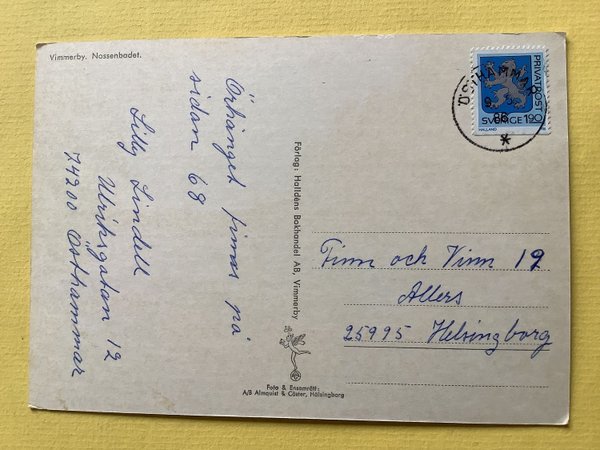 Vimmerby. Nossenbadet.
Örhänget finns på
sidan 68
Lilly Lindell
Ulriksgatan 12
74200 Östhammar
Förlag: Halldéns Bokhandel AB, Vimmerby
Foto & Ensamrätt:
A/B Almquist & Cöster, Hälsingborg
PRIVATPOST
SVERIGE 190
HALLAND
ÖSTHAMMAR
86
Finn och Vinn 12
Allers
25995 Helsingborg